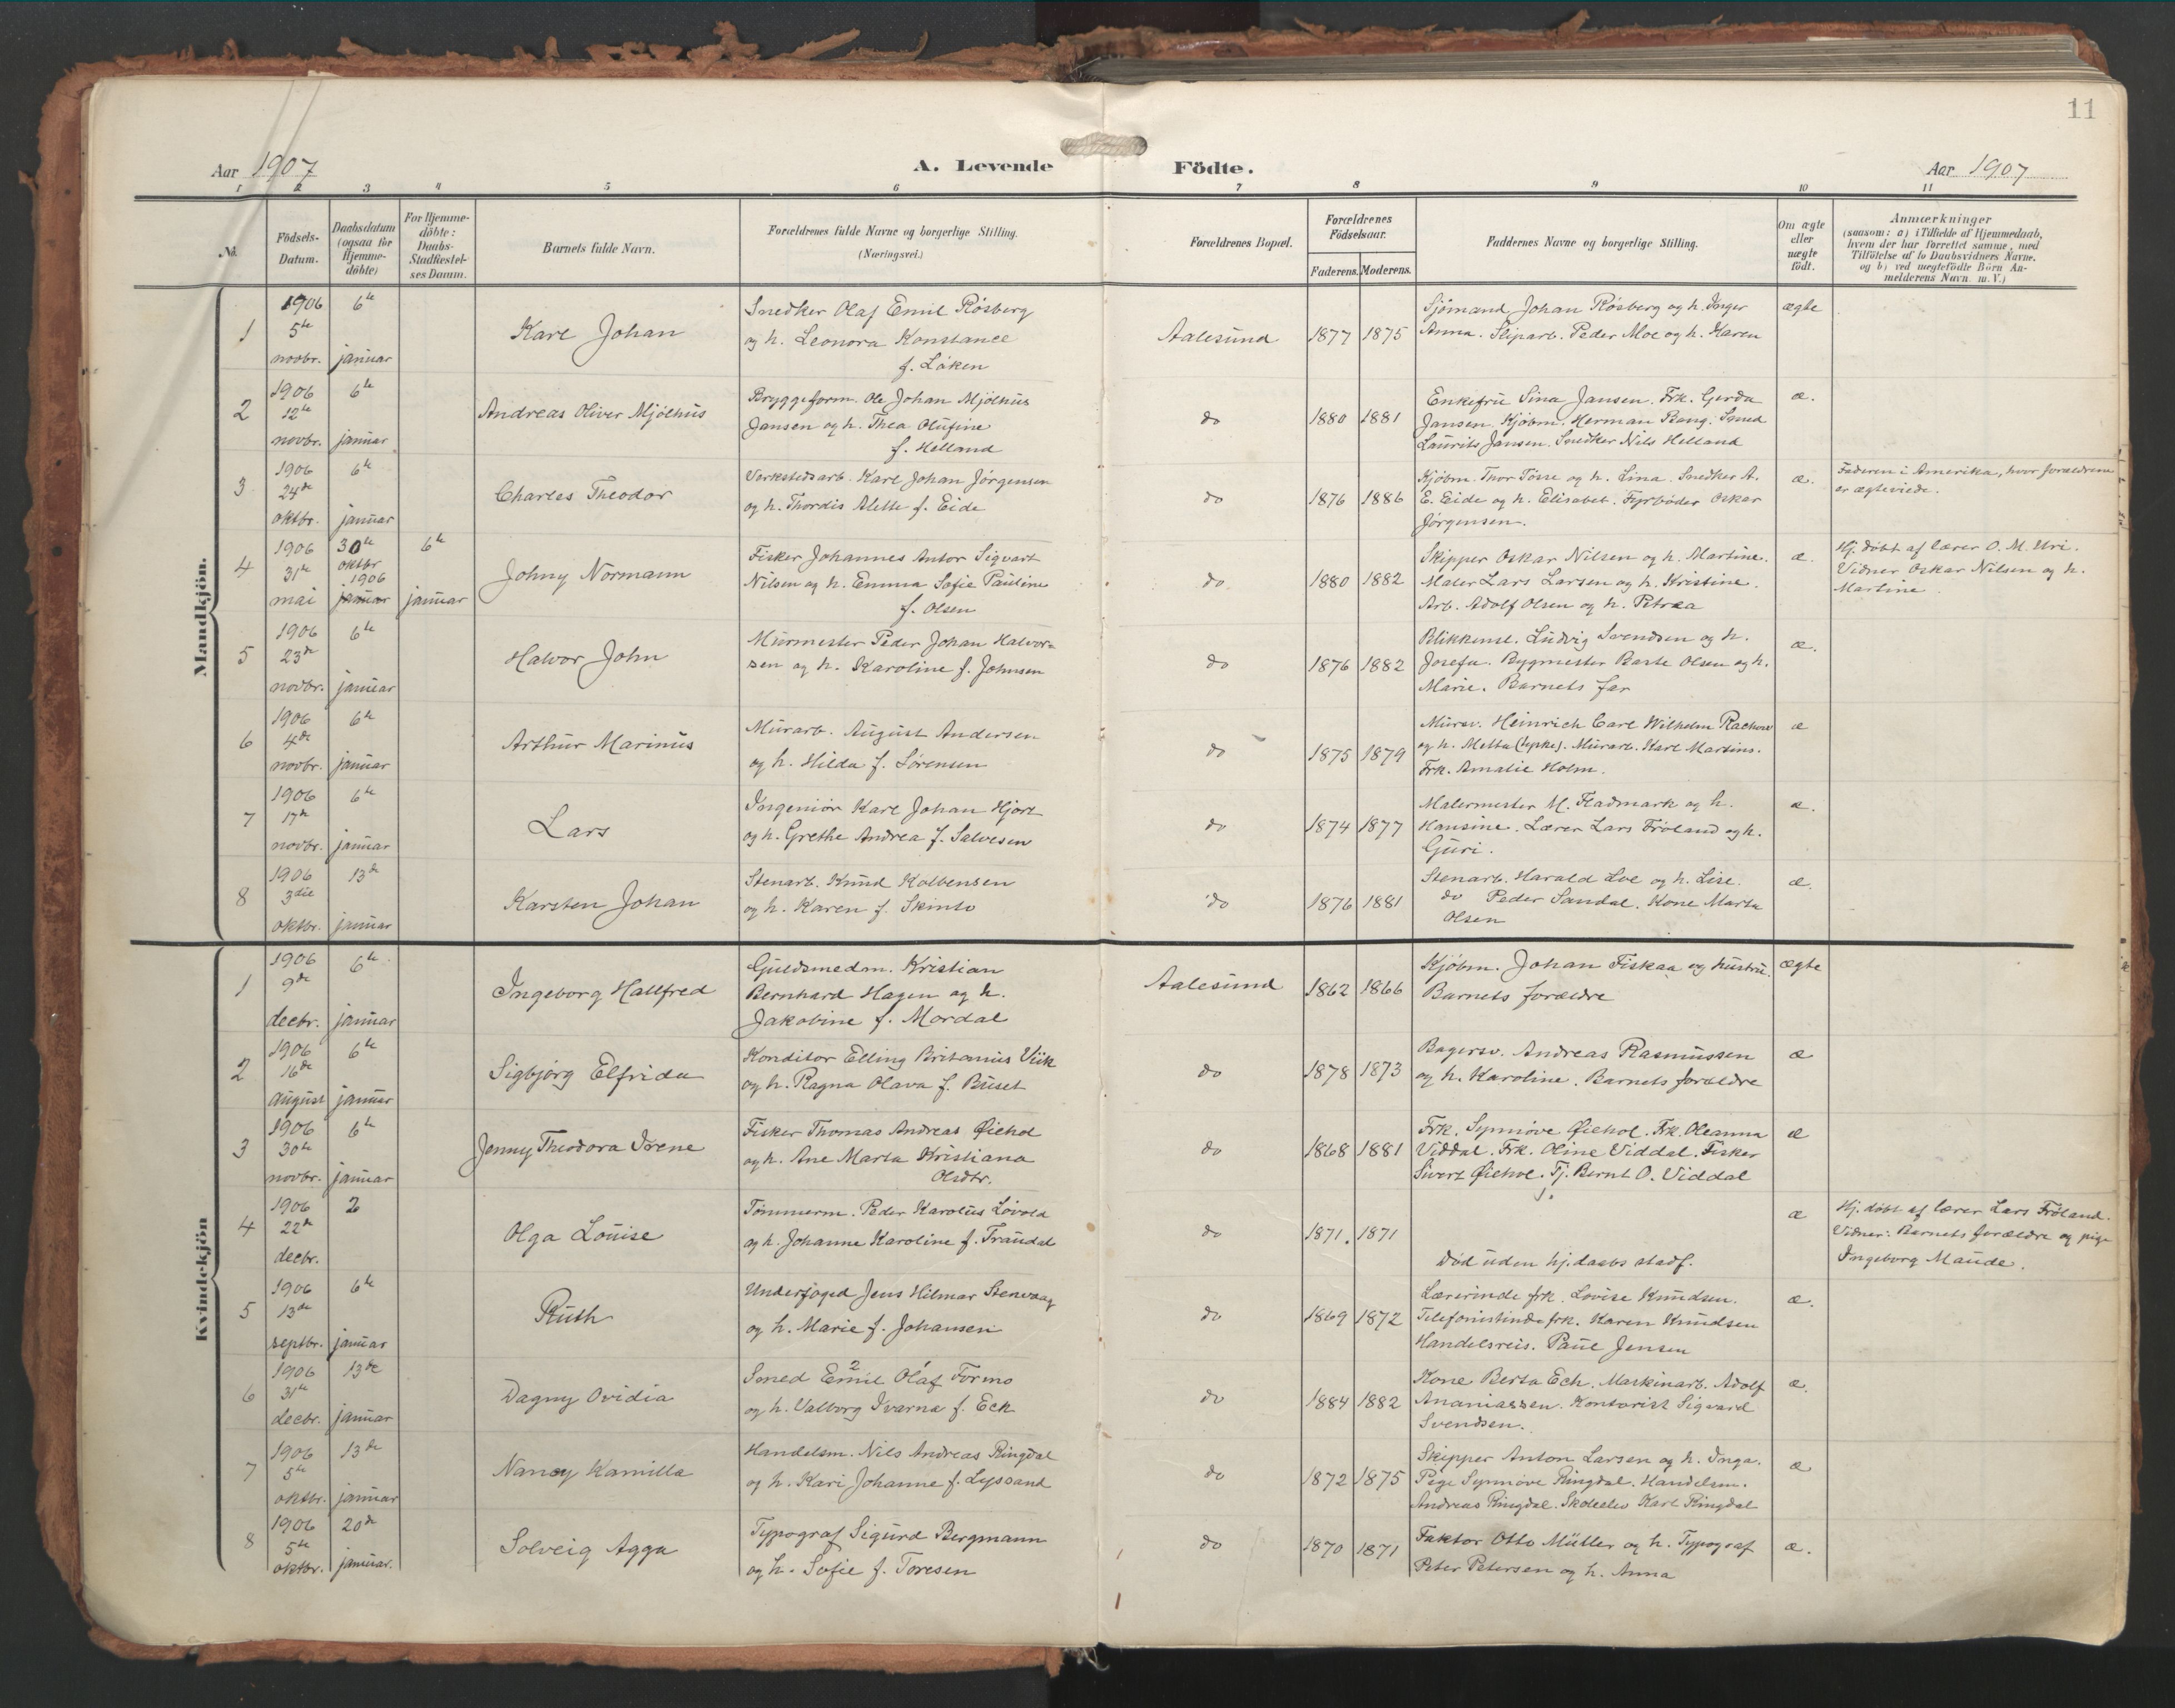 11
Aar 1907
A. Levende Födte.
Aar 1907
1 2 3 4 5 6 7 8 9 10 11
No.
Födsels-
Datum.
Daabsdatum
(ogsaa for
Hjemme-
döbte)
For Hjemme-
döbte:
Daabs-
Stadfæstel-
ses Datum.
Barnets fulde Navn.
Forældrenes fulde Navne og borgerlige Stilling.
(Næringsvei.)
Forældrenes Bopæl.
Forældrenes
Födselsaar.
Faderens. Moderens.
Faddernes Navne og borgerlige Stilling.
Om ægte
eller
uægte
födt.
Anmærkninger
(saasom: a) i Tilfælde af Hjemmedaab,
hvem der har forrettet samme, med
Tilföielse af to Daabsvidners Navne.
og b) ved uægtefödte Börn An-
melderens Navn m. V.)
Mandkjön.
1
1906
5te
novbr.
6te
januar
Karl Johan
Snedker Olaf Emil Rösberg
og h. Leonora Konstance
f. Löken
Aalesund
1877 1875
Sjömand Johan Rösberg og h. Inger
Anna. Sliparb. Peder Moe og h. Karen
ægte
2
1906
12te
novbr.
6te
januar
Andreas Oliver Mjölhus
Bryggeform. Ole Johan Mjölhus
Jansen og h. Thea Olufine
f. Helland
do
1880 1881
Enkefru Sina Jansen. Frk. Gerda
Jansen. Kjöbm. Herman Bang. Smed
Laurits Jansen. Snedker Nils Helland
æ.
3
1906
24de
oktbr.
6te
januar
Charles Theodor
Verkstedsarb. Karl Johan Jörgensen
og h. Thordis Alette f. Eide
do
1876 1886
Kjöbm. Thor Tösse og h. Lina. Snedker A.
E. Eide og h. Elisabet. Fyrböder Oskar
Jörgensen.
æ.
Faderen i Amerika, hvor forældrene
er ægteviede.
4
1906
31te
mai
30te
oktbr
1906
januar
6te
januar
Johny Normann
Fisker Johannes Anton Sigvart
Nilsen og h. Emma Sofie Pauline
f. Olsen
do.
1880 1882
Skipper Oskar Nilsen og h. Martine.
Maler Lars Larsen og h. Kristine.
Arb. Adolf Olsen og h. Petrea
æ.
Hj. döbt af lærer O. M. Uri.
Vidner Oskar Nilsen og h.
Martine.
5
1906
23de
novbr.
6te
januar
Halvor John
Murmester Peder Johan Halvor-
sen og h. Karoline f. Johnsen
do
1876 1882
Blikkensl. Ludvig Svendsen og h.
Josefa. Bygmester Baste Olsen og h.
Marie. Barnets far
æ.
6
1906
4de
novbr.
6te
januar
Arthur Marinus
Murarb. August Andersen
og h. Hilda f. Sörensen
do
1875 1879
Mursv. Heinrich Carl Wilhelm Rachow
og h. Metta (tyske). Murarb. Karl Martins.
Frk. Amalie Holm.
æ
7
1906
17de
novbr.
6te
januar
Lars
Ingeniör Karl Johan Hjort
og h. Grethe Andrea f. Salvesen
do
1874 1877
Malermester M. Fladmark og h.
Hansine. Lærer Lars Fröland og h.
Guri.
æ.
8
1906
3die
oktbr.
13de
januar
Karsten Johan
Stenarb. Knud Kolbensen
og h. Karen f. Skinlo
do
1876 1881
Stenarb. Harald Loe og h. Lise.
do Peder Sandal. Kone Marta
Olsen
æ.
Kvindekjön
1
1906
9de
decbr.
6te
januar
Ingeborg Hallfred
Guldsmedm. Kristian
Bernhard Hagen og h.
Jakobine f. Mordal
Aalesund
1862 1866
Kjöbm. Johan Fiskaa og hustru.
Barnets forældre
ægte
2
1906
16de
august
6te
januar
Sigbjörg Elfrida
Konditor Elling Britanius Viik
og h. Ragna Olava f. Buset
do
1878 1873
Bagersv. Andreas Rasmussen
og h. Karoline. Barnets forældre
æ
3
1906
30te
novbr.
6te
januar
Jenny Theodora Irene
Fisker Thomas Andreas Øiehol
og h. Ane Marta Kristiana
Olsdtr.
do
1868 1881
Frk. Synnöve Øiehol. Frk. Oleanna
Viddal. Frk. Oline Viddal. Fisker
Sivert Øiehol. Tj. Bernt O. Viddal
æ
4
1906
22de
decbr.
2
Olga Louise
Tömmerm. Peder Karolus Lövold
og h. Johanne Karoline f. Trandal
do
1871. 1871
Död uden hj.daabs stadf.
æ
Hj. döbt af lærer Lars Fröland.
Vidner: Barnets forældre og pige
Ingeborg Maude.
5
1906
13de
septbr.
6te
januar
Ruth
Underfoged Jens Hilmar Stenvaag
og h. Marie f. Johansen
do
1869 1872
Lærerinde frk. Lovise Knudsen.
Telefonistinde frk. Karen Knudsen
Handelsreis. Paul Jensen
æ.
6
1906
31te
decbr.
13de
januar
Dagny Ovidia
Smed Emil 2 Olaf 1 Formo
og h. Valborg Ivarna f. Eck
do
1884 1882
Kone Berta Eck. Maskinarb. Adolf
Ananiassen. Kontorist Sigvard
Svendsen.
æ.
7
1906
5te
oktbr.
13de
januar
Nancy Kamilla
Handelsm. Nils Andreas Ringdal
og h. Kari Johanne f. Lyssand
do
1872 1875
Skipper Anton Larsen og h. Inga.
Pige Synnöve Ringdal. Handelsm.
Andreas Ringdal. Skoleelev Karl Ringdal
æ
8
1906
5te
oktbr.
20de
januar.
Solveig Agga
Typograf Sigurd Bergmann
og h. Sofie f. Toresen
do
1870 1871
Faktor Otto Müller og h. Typograf
Peter Petersen og h. Anna
æ.